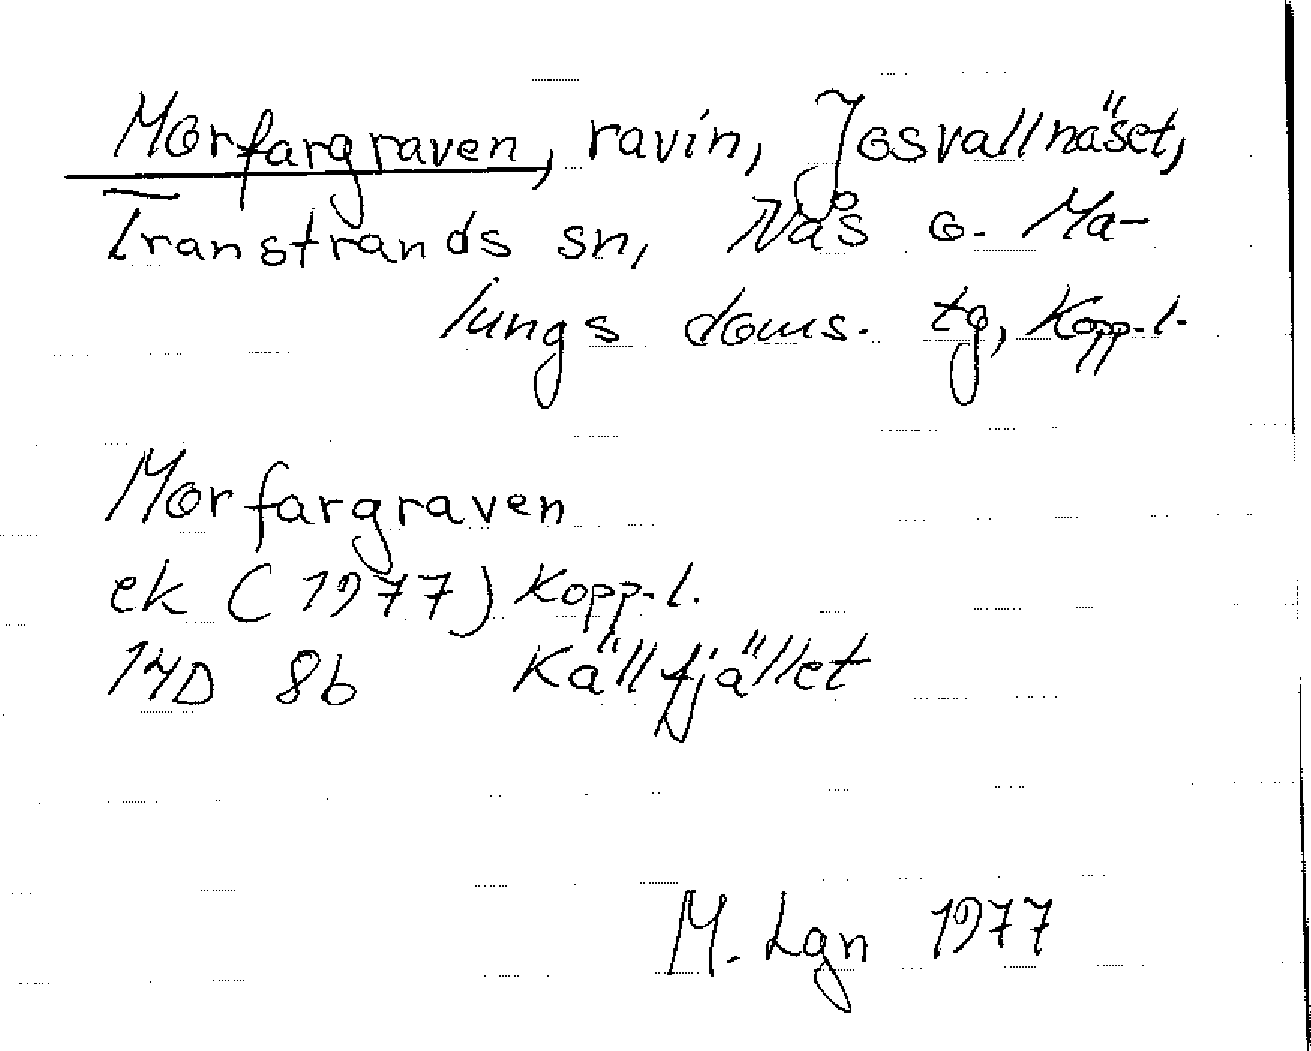 Morfargraven, ravin, Josvallnäset,
Transtrands sn, Nås o. Ma-
lungs doms. tg, Kopp.l.
Morfargraven
ek (1977) Kopp.l.
14D 8b Källfjället
M. Lgn 1977